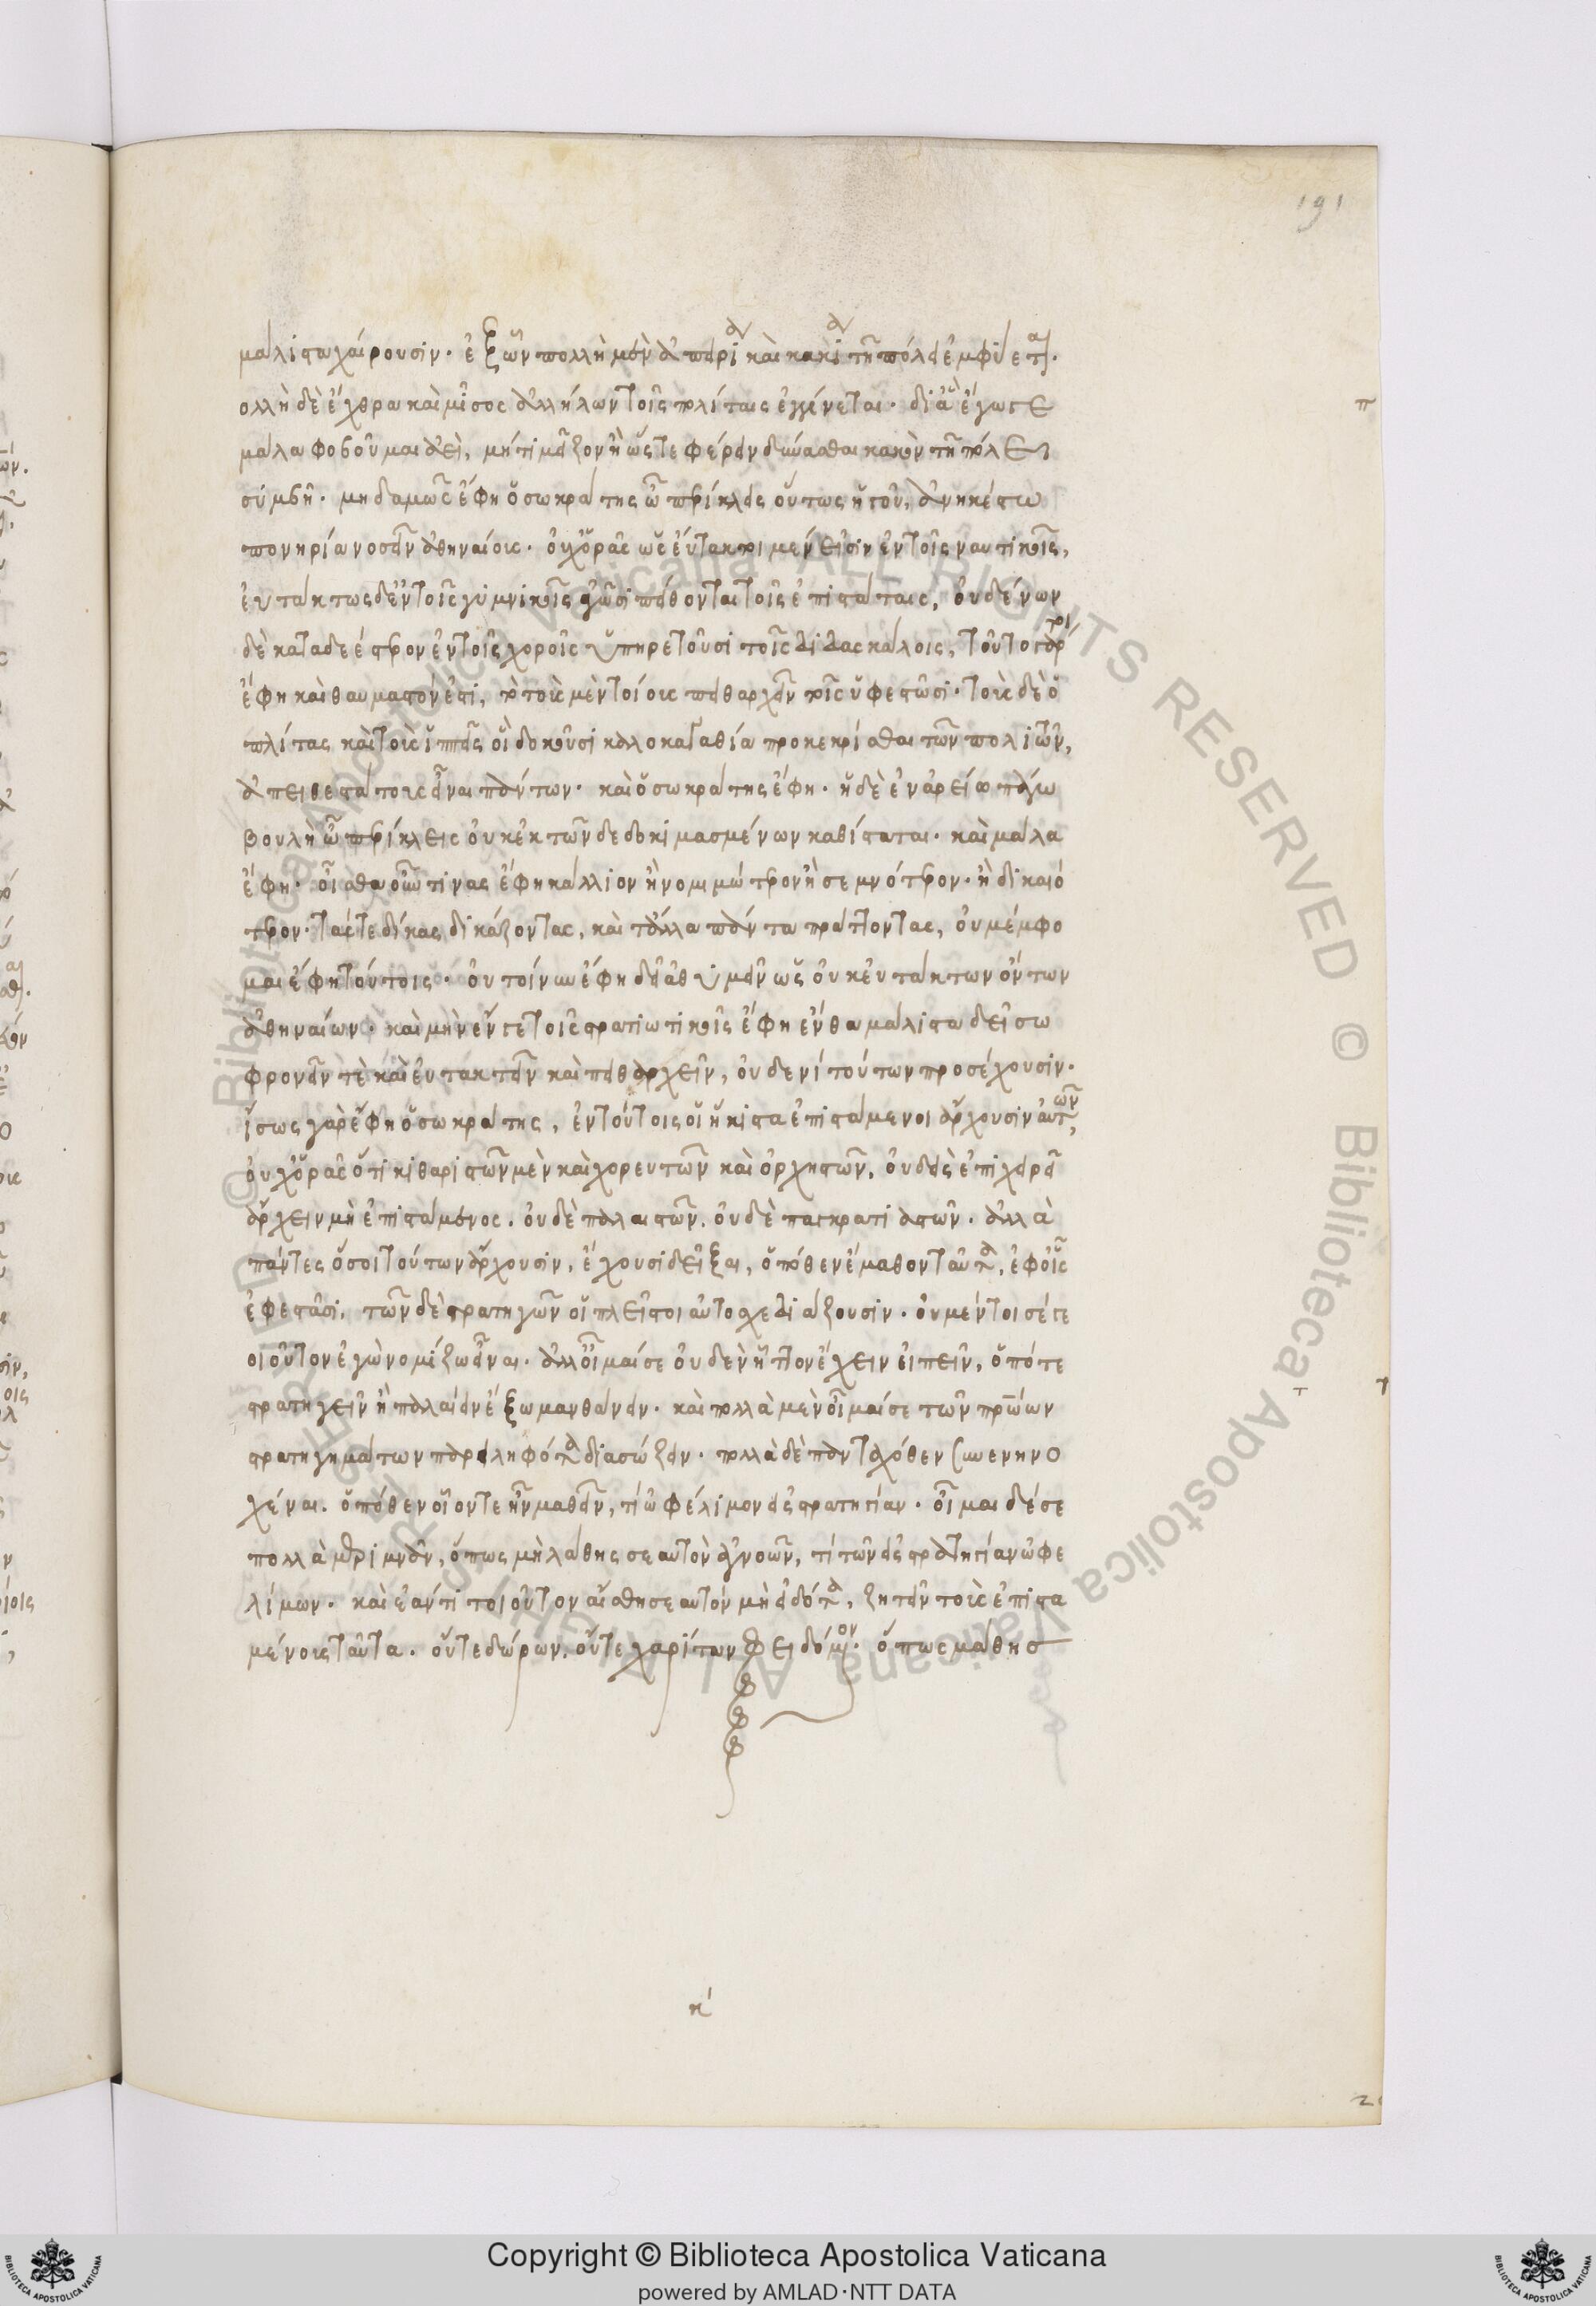 191
μάλιστα χαίρουσιν· ἐξ ὧν πολλὴ μὲν ἀπειρία καὶ κακία τῆ πόλει ἐμφύεται·
ολλὴ δὲ ἔχθρα καὶ μῖσος ἀλλήλων τοῖς πολίταις ἐγγίνεται· δι ἃ ἔγωγε
μάλα φοβοῦμαι ἀεὶ, μή τι μεῖζον ἢ ὥστε φέρειν δύνασθαι κακὸν τῆ πόλει
συμβῆ· μηδαμῶς ἔφη ὁ σωκράτης ὦ περίκλεις οὕτως ἡγοῦ, ἀνηκέστω
πονηρία νοσεῖν ἀθηναίους· οὐχ ὁρᾶς ὡς εὔτακτοι μέν εἰσιν ἐν τοῖς ναυτικοῖς,
εὐτάκτως δ' ἐν τοῖς γυμνικοῖς ἀγῶσι πείθονται τοῖς ἐπιστάταις, οὐδένων
δὲ καταδεέστερον ἐν τοῖς χοροῖς ὑπηρετοῦσι τοῖς διδασκάλοις, τοῦτο γάρ τοι
ἔφη καὶ θαυμαστόν ἐστι, τὸ τοὺς μὲν τοίους πειθαρχεῖν τοῖς ὑφεστῶσι· τοὺς δὲ ὁ
πλίτας καὶ τοὺς ἱππεῖς οἳ δοκοῦσι καλοκαγαθία προκεκρίσθαι τῶν πολιτῶν,
ἀπειθεστάτους εἶναι πάντων· καὶ ὁ σωκράτης ἔφη· ἡ δὲ ἐν ἀρείω πάγω
βουλὴ ὦ περίκλεις οὐκ ἐκ τῶν δεδοκιμασμένων καθίσταται· καὶ μάλα
ἔφη· οἶσθα οὖν τινας ἔφη κάλλιον ἢ νομιμώτερον ἢ σεμνότερον· ἢ δικαιό
τερον· τάς τε δίκας δικάζοντας, καὶ τἄλλα πάντα πράττοντας, οὐ μέμφο
μαι ἔφη τούτοις· οὐ τοίνυν ἔφη δεῖ ἀθυμεῖν ὡς οὐκ εὐτάκτων ὄντων
ἀθηναίων· καὶ μὴν ἔν γε τοῖς στρατιωτικοῖς ἔφη ἔνθα μάλιστα δεῖ σω
φρονεῖν τὲ καὶ εὐτακτεῖν καὶ πειθαρχεῖν, οὐδενί τούτων προσέχουσιν·
ἴσως γὰρ ἔφη ὁ σωκράτης, ἐν τούτοις οἱ ἥκιστα ἐπιστάμενοι ἄρχουσιν αὐτῶν,
οὐχ ὁρᾶς ὅτι κιθαριστῶν μὲν καὶ χορευτῶν καὶ ὀρχηστῶν, οὐδεὶς ἐπιχειρεῖ
ἄρχειν μὴ ἐπιστάμενος· οὐδὲ παλαιστῶν. οὐδὲ παγκρατιαστῶν· ἀλλὰ
πάντες ὅσοι τούτων ἄρχουσιν, ἔχουσι δεῖξαι, ὁπόθεν ἔμαθον ταῦτα, ἐφ' οἷς
ἐφεστᾶσι. τῶν δὲ στρατηγῶν οἱ πλεῖστοι αὐτοσχεδιάζουσιν· οὐ μέντοι σέ γε
τοιοῦτον ἐγὼ νομίζω εἶναι· ἀλλ' οἶμαί σε οὐδὲν ἧττον ἔχειν εἰπεῖν, ὁπότε
στρατηγεῖν ἢ παλαίειν ἔξω μανθάνειν· καὶ πολλὰ μὲν οἶμαί σε τῶν πρώων
στρατηγημάτων παρειληφότα διασώζειν· πολλὰ δὲ πανταχόθεν συνενηνο
χέναι. ὁπόθεν οἷόν τε ἦν μαθεῖν, τι ὠφέλιμον εἰς στρατηγίαν· οἶμαι δέ σε
πολλὰ μεριμνᾶν, ὅπως μὴ λάθης σεαυτὸν ἀγνοῶν, τι τῶν εἰς στρατηγίαν ὠφε
λίμων· καὶ ἐάν τι τοιοῦτον αἴσθη σεαυτόν μὴ εἰδότα, ζητεῖν τοὺς ἐπιστα
μένους ταῦτα· οὔτε δώρων. οὔτε χαρίτων φειδόμενον· ὅπως μάθης
κ'